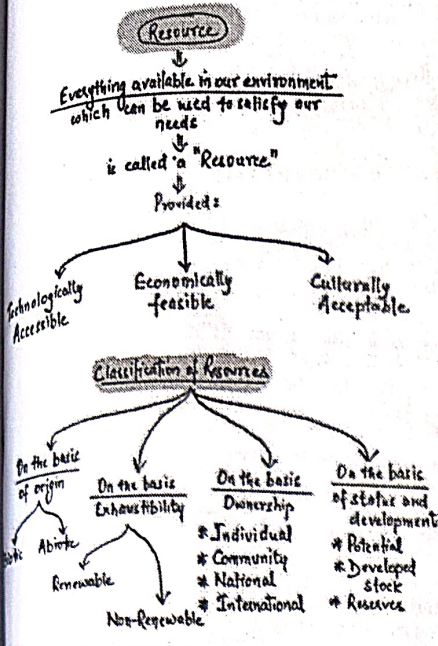 Resource
Everything available in our environment
which can be used to satisfy our
needs
is called a "Resource"
Provided:
Technologically
Accessible
Economically
feasible
Culturally
Acceptable
Classification of Resources
On the basis
of origin
Abiotic
On the basis
Exhaustibility
Renewable
Non-Renewable
On the basis
Ownership
* Individual
* Community
* National
* International
On the basis
of status and
development
* Potential
* Developed
stock
* Reserves